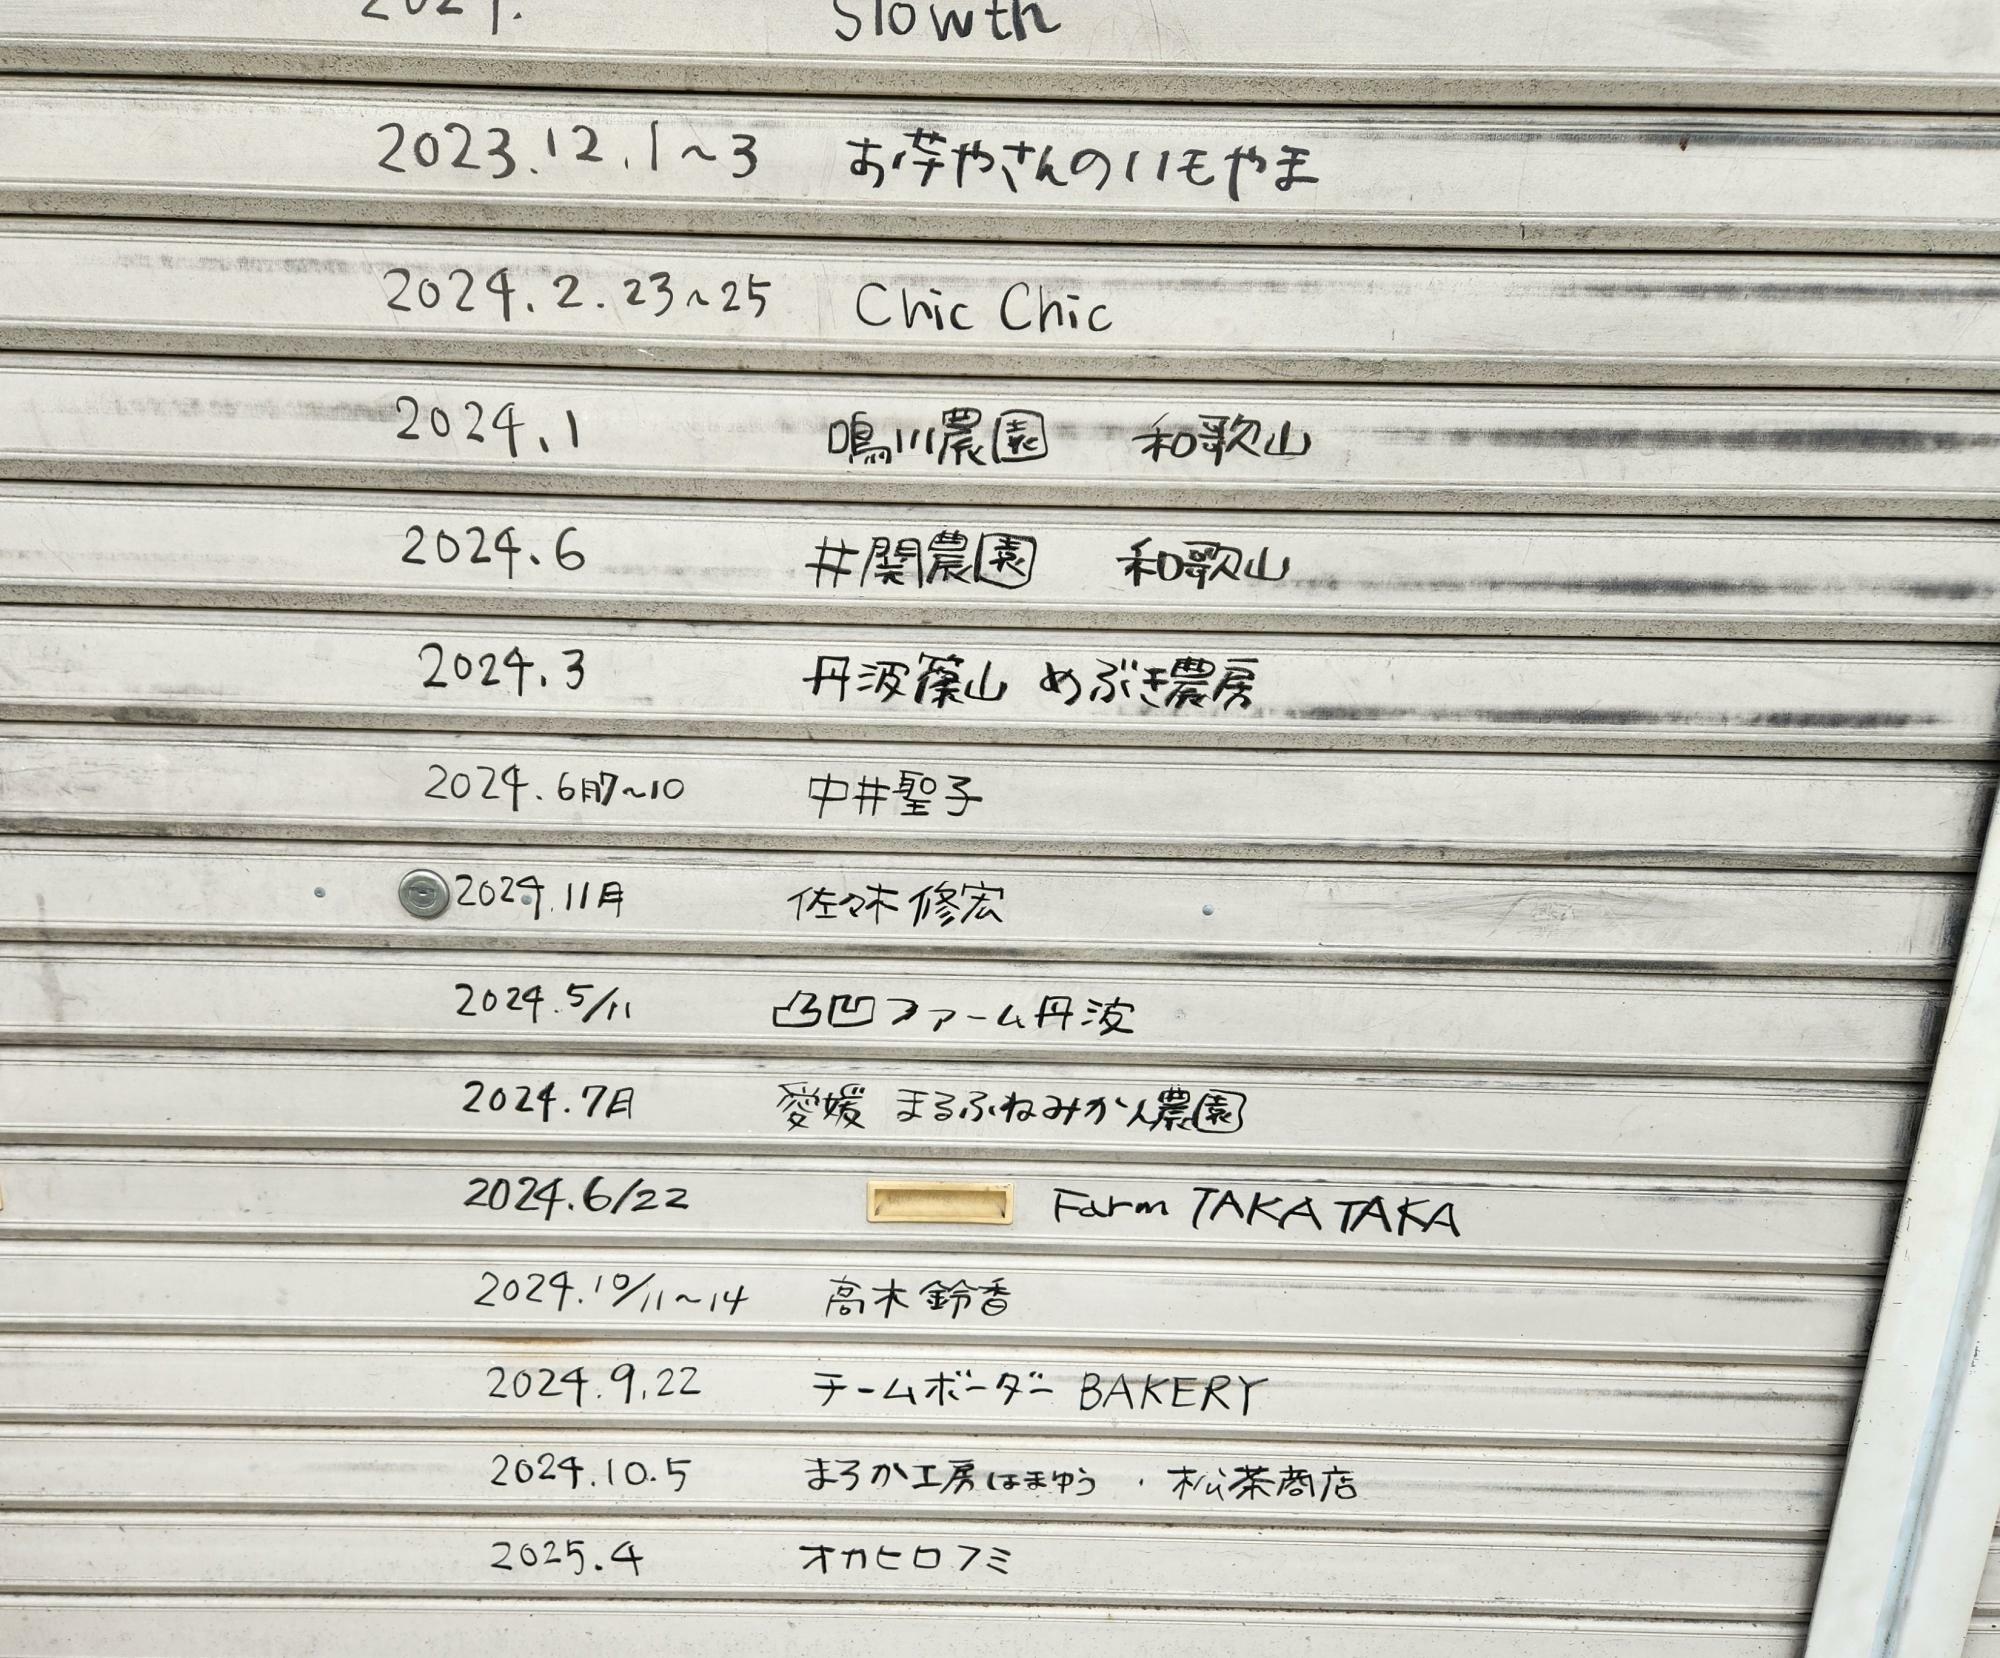 2021. Slowth
2023.12.1~3 お芋やさんのいモやま
2024.2.23~25 Chic Chic
2024.1 鳴川農園 和歌山
2024.6 井関農園 和歌山
2024.3 丹波篠山 めぶき農房
2024.6月7~10 中井聖子
2024.11月 佐々木修宏
2024.5/11 凸凹ファーム丹波
2024.7月 愛媛 まるふねみかん農園
2024.6/22 Farm TAKA TAKA
2024.10/11~14 高木鈴香
2024.9.22 チームボーダー BAKERY
2024.10.5 まろか工房はまゆう・松茶商店
2025.4 オカヒロフミ